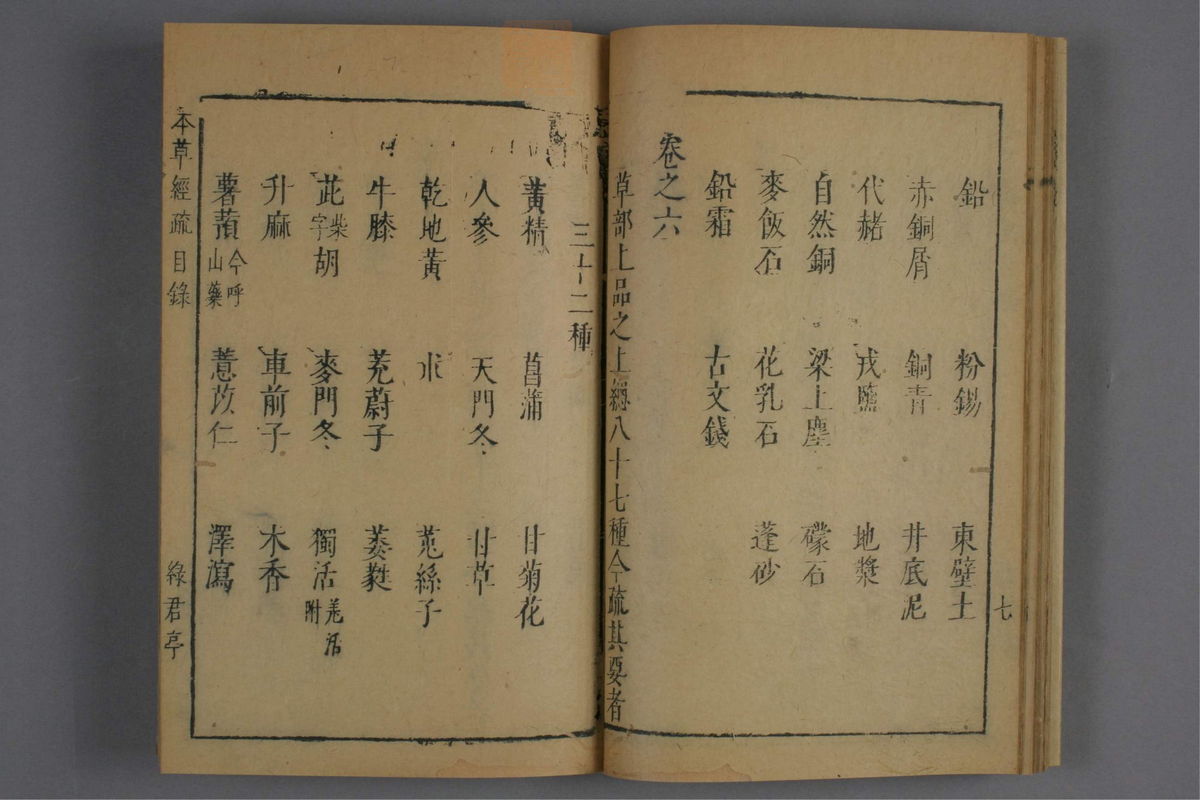 七
鉛 粉錫 東壁土
赤銅屑 銅青 井底泥
代赭 戎鹽 地漿
自然銅 梁上塵 礞石
麥飯石 花乳石 蓬砂
鉛霜 古文錢
卷之六
草部上品之上緫八十七種今疏其要者
三十二種
黃精 菖蒲 甘菊花
人參 天門冬 甘草
乾地黃 朮 菟絲子
牛膝 茺蔚子 萎蕤
茈柴字胡 麥門冬 獨活羌活附
升麻 車前子 木香
薯蕷今呼山藥 薏苡仁 澤瀉
本草經疏 目錄 綠君亭